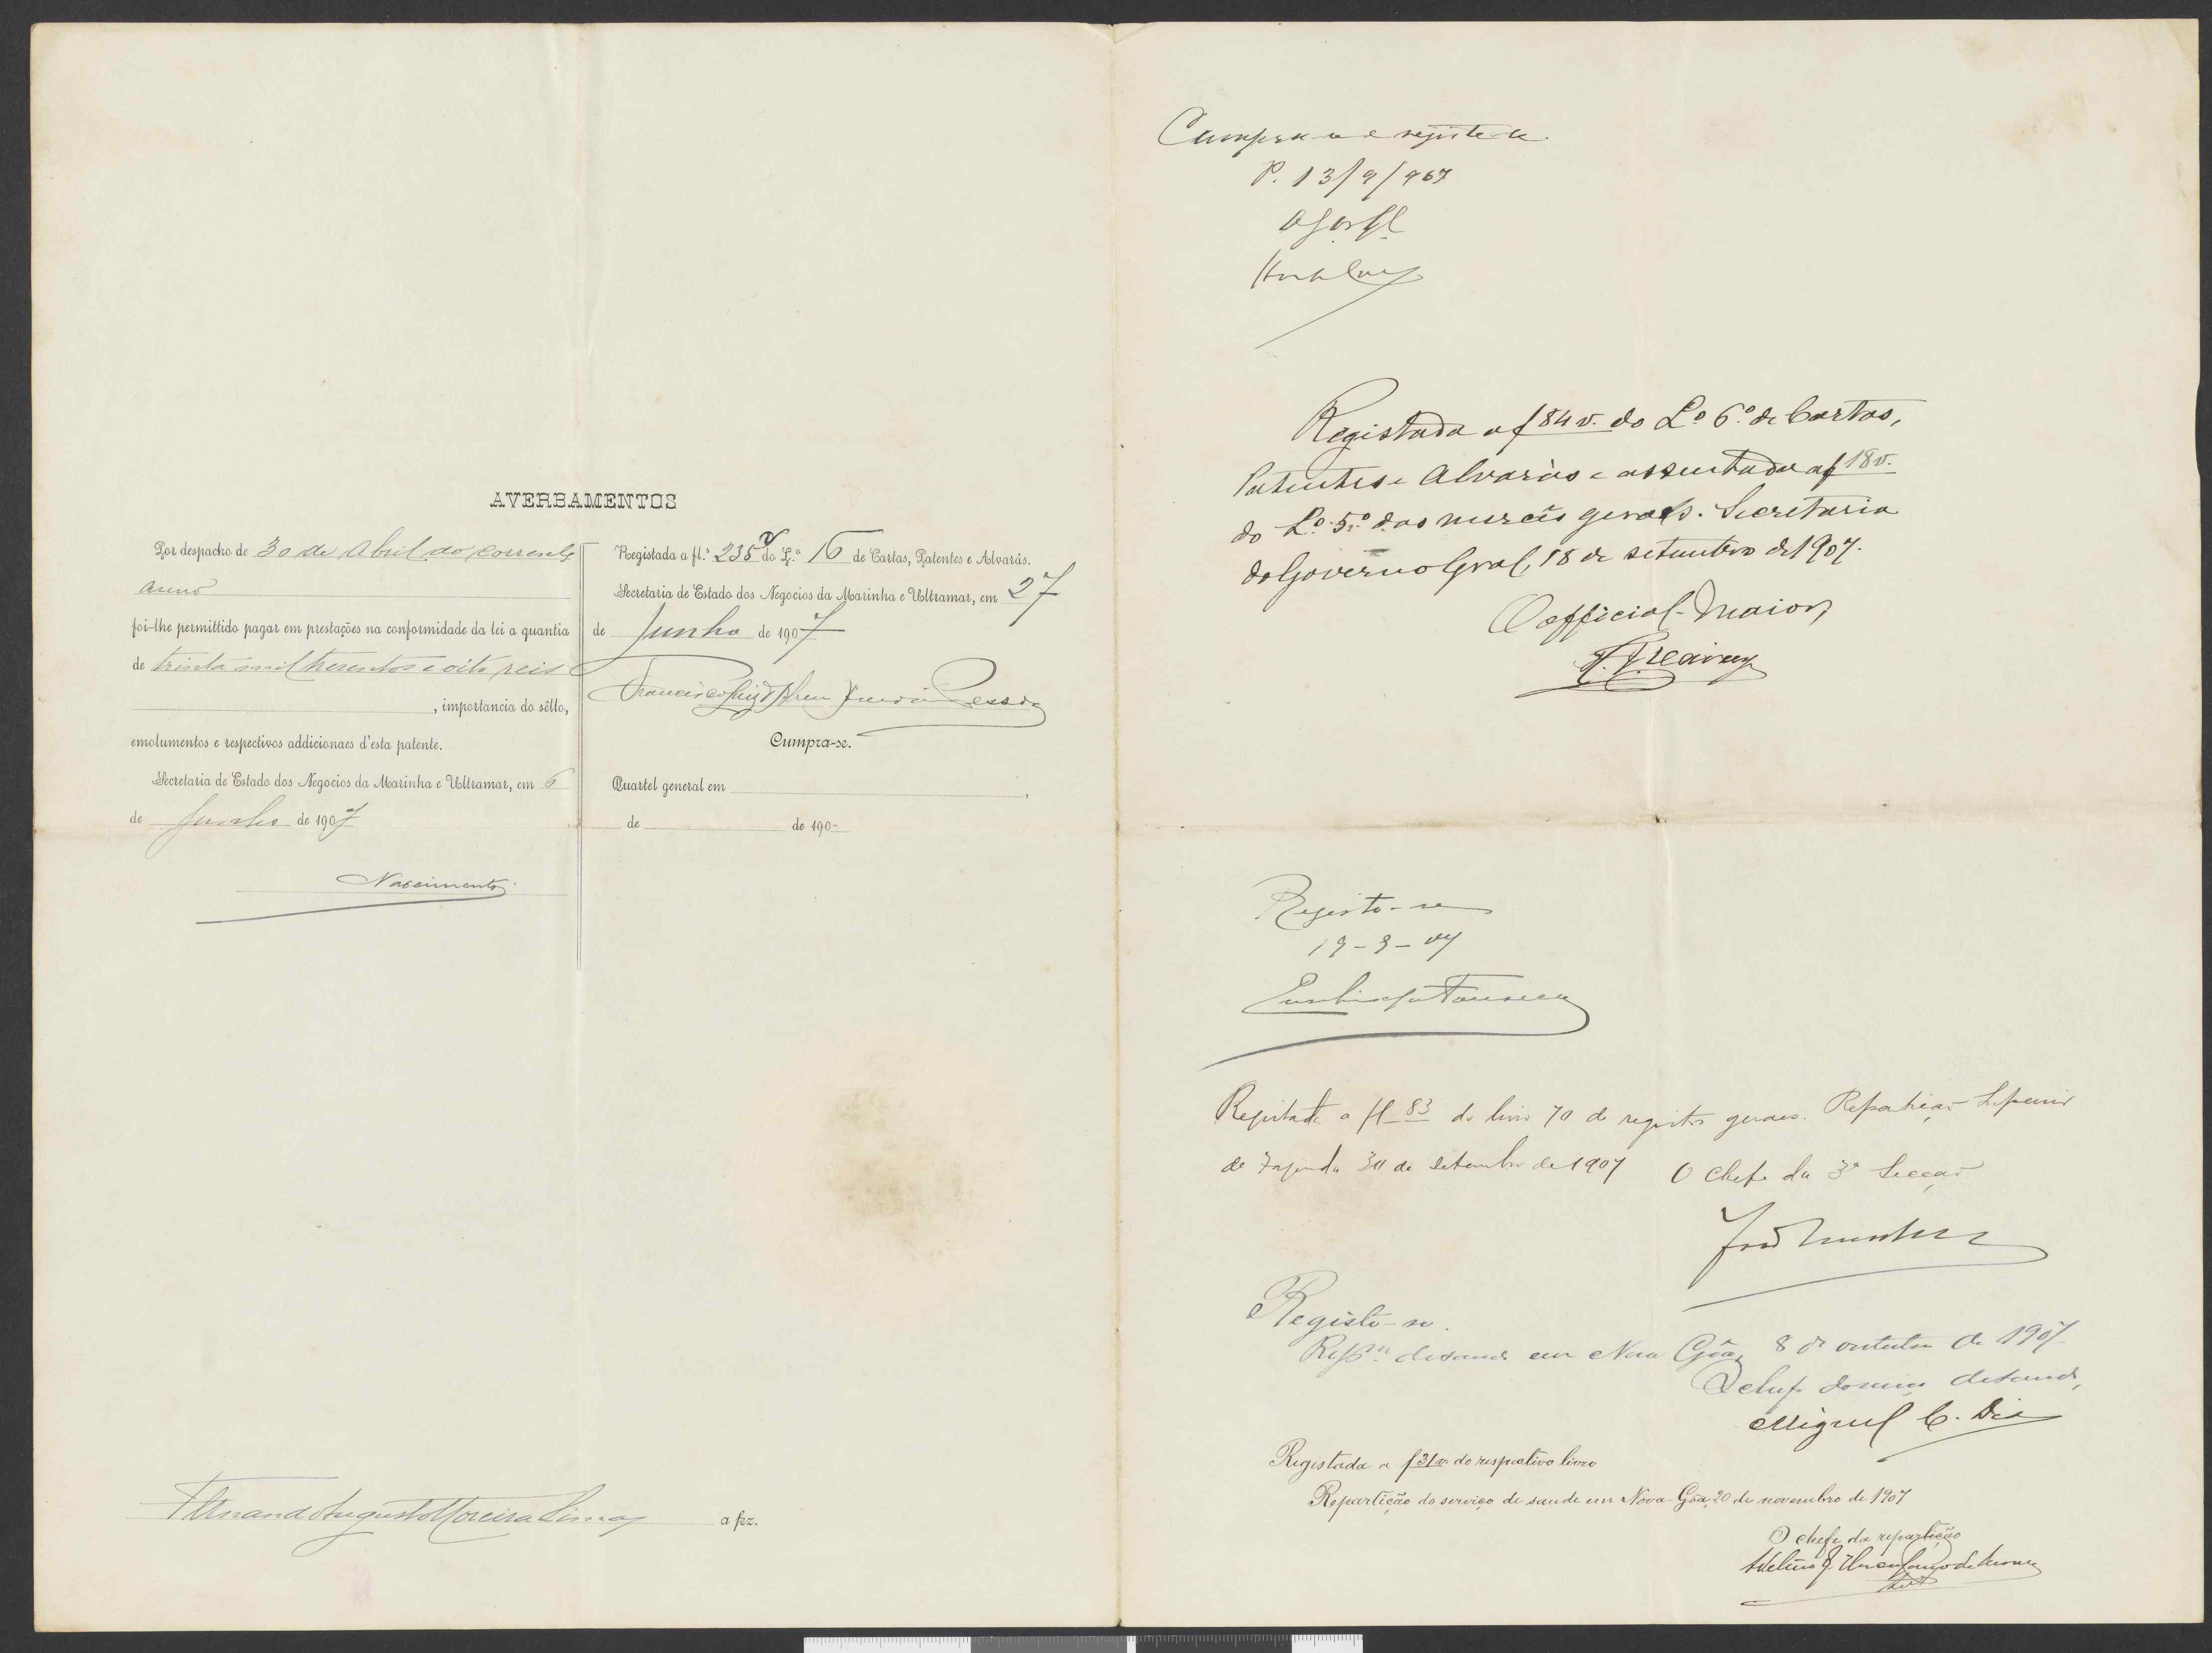 AVERBAMENTOS
Por despacho de 30 de Abril do corrente
anno
foi-lhe permittido pagar em prestações na conformidade da lei a quantia
de trinta mil trezentos e oito reis
, importancia do sêllo,
emolumentos e respectivos addicionaes d'esta patente.
Secretaria de Estado dos Negocios da Marinha e Ultramar, em 6
de Junho de 1907
Nascimento
Registada a fl.ª 235 v do L.º 16 de Cartas, Patentes e Alvarás.
Secretaria de Estado dos Negocios da Marinha e Ultramar, em 27
de Junho de 1907
Francisco Luiz Pessoa
Cumpra-se.
Quartel general em ,
de de 190-
Fernando Augusto Moreira Limas a fez.
Cumpra-se e registe-se.
P. 13/9/907
Registada a f 84 v. do L.º 6.º de Cartas,
Patentes e Alvarás e assentada a f 18 v.
do L.º 5.º das mercês geraes. Secretaria
do Governo Geral, 18 de setembro de 1907.
O official-maior,
Registe-se
19-9-07
Fonseca
Registada a fl 83 do livro 70 de registos geraes. Repartição Superior
de Fazenda 30 de Setembro de 1907 O Chefe da 3ª Secção
Registe-se.
Repam. de saude em Nova Gôa, 8 de outubro de 1907
O chefe do serviço de saude,
Miguel C. Dias
Registada a f 31 v. do respectivo livro
Repartição do serviço de saude em Nova-Gôa, 20 de novembro de 1907
O chefe da repartição